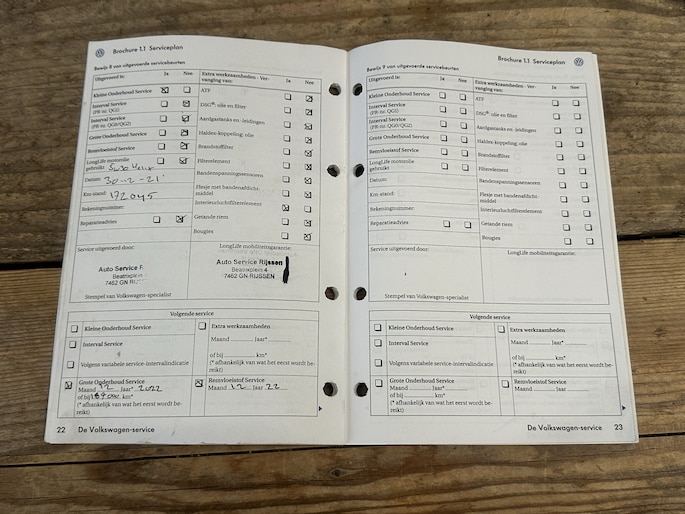 Brochure 1.1 Serviceplan
Bewijs 8 van uitgevoerde servicebeurten
Uitgevoerd is: Ja Nee
Kleine Onderhoud Service
Interval Service
(PR nr. QG1)
Interval Service
(PR nr. QG0/QG2)
Grote Onderhoud Service
Remvloeistof Service
LongLife motorolie
gebruikt
Datum: 30-2-21
Km-stand: 172045
Rekeningnummer:
Reparatieadvies
Extra werkzaamheden - Ver-
vanging van: Ja Nee
ATF
DSG®: olie en filter
Aardgastanks en -leidingen
Haldex-koppeling: olie
Brandstoffilter
Filterelement
Bandenspanningssensoren
Flesje met bandenafdicht-
middel
Interieurluchtfilterelement
Getande riem
Bougies
Service uitgevoerd door:
Auto Service R
Beatrixplein
7462 GN
Stempel van Volkswagen-specialist
LongLife mobiliteitsgarantie:
Auto Service Rijssen
Beatrixplein 4
7462 GN RIJSSEN
Volgende service
Kleine Onderhoud Service
Interval Service
Volgens variabele service-intervalindicatie
Grote Onderhoud Service
Maand 12 Jaar* 2022
of bij km*
(* afhankelijk van wat het eerst wordt be-
reikt)
Extra werkzaamheden
Maand Jaar*
of bij km*
(* afhankelijk van wat het eerst wordt be-
reikt)
Remvloeistof Service
Maand 12 Jaar 22
22 De Volkswagen-service
Brochure 1.1 Serviceplan
Bewijs 9 van uitgevoerde servicebeurten
Uitgevoerd is: Ja Nee
Kleine Onderhoud Service
Interval Service
(PR nr. QG1)
Interval Service
(PR nr. QG0/QG2)
Grote Onderhoud Service
Remvloeistof Service
LongLife motorolie
gebruikt
Datum:
Km-stand:
Rekeningnummer:
Reparatieadvies
Extra werkzaamheden - Ver-
vanging van: Ja Nee
ATF
DSG®: olie en filter
Aardgastanks en -leidingen
Haldex-koppeling: olie
Brandstoffilter
Filterelement
Bandenspanningssensoren
Flesje met bandenafdicht-
middel
Interieurluchtfilterelement
Getande riem
Bougies
Service uitgevoerd door:
Stempel van Volkswagen-specialist
LongLife mobiliteitsgarantie:
Volgende service
Kleine Onderhoud Service
Interval Service
Volgens variabele service-intervalindicatie
Grote Onderhoud Service
Maand Jaar*
of bij km*
(* afhankelijk van wat het eerst wordt be-
reikt)
Extra werkzaamheden
Maand Jaar*
of bij km*
(* afhankelijk van wat het eerst wordt be-
reikt)
Remvloeistof Service
Maand Jaar
De Volkswagen-service 23